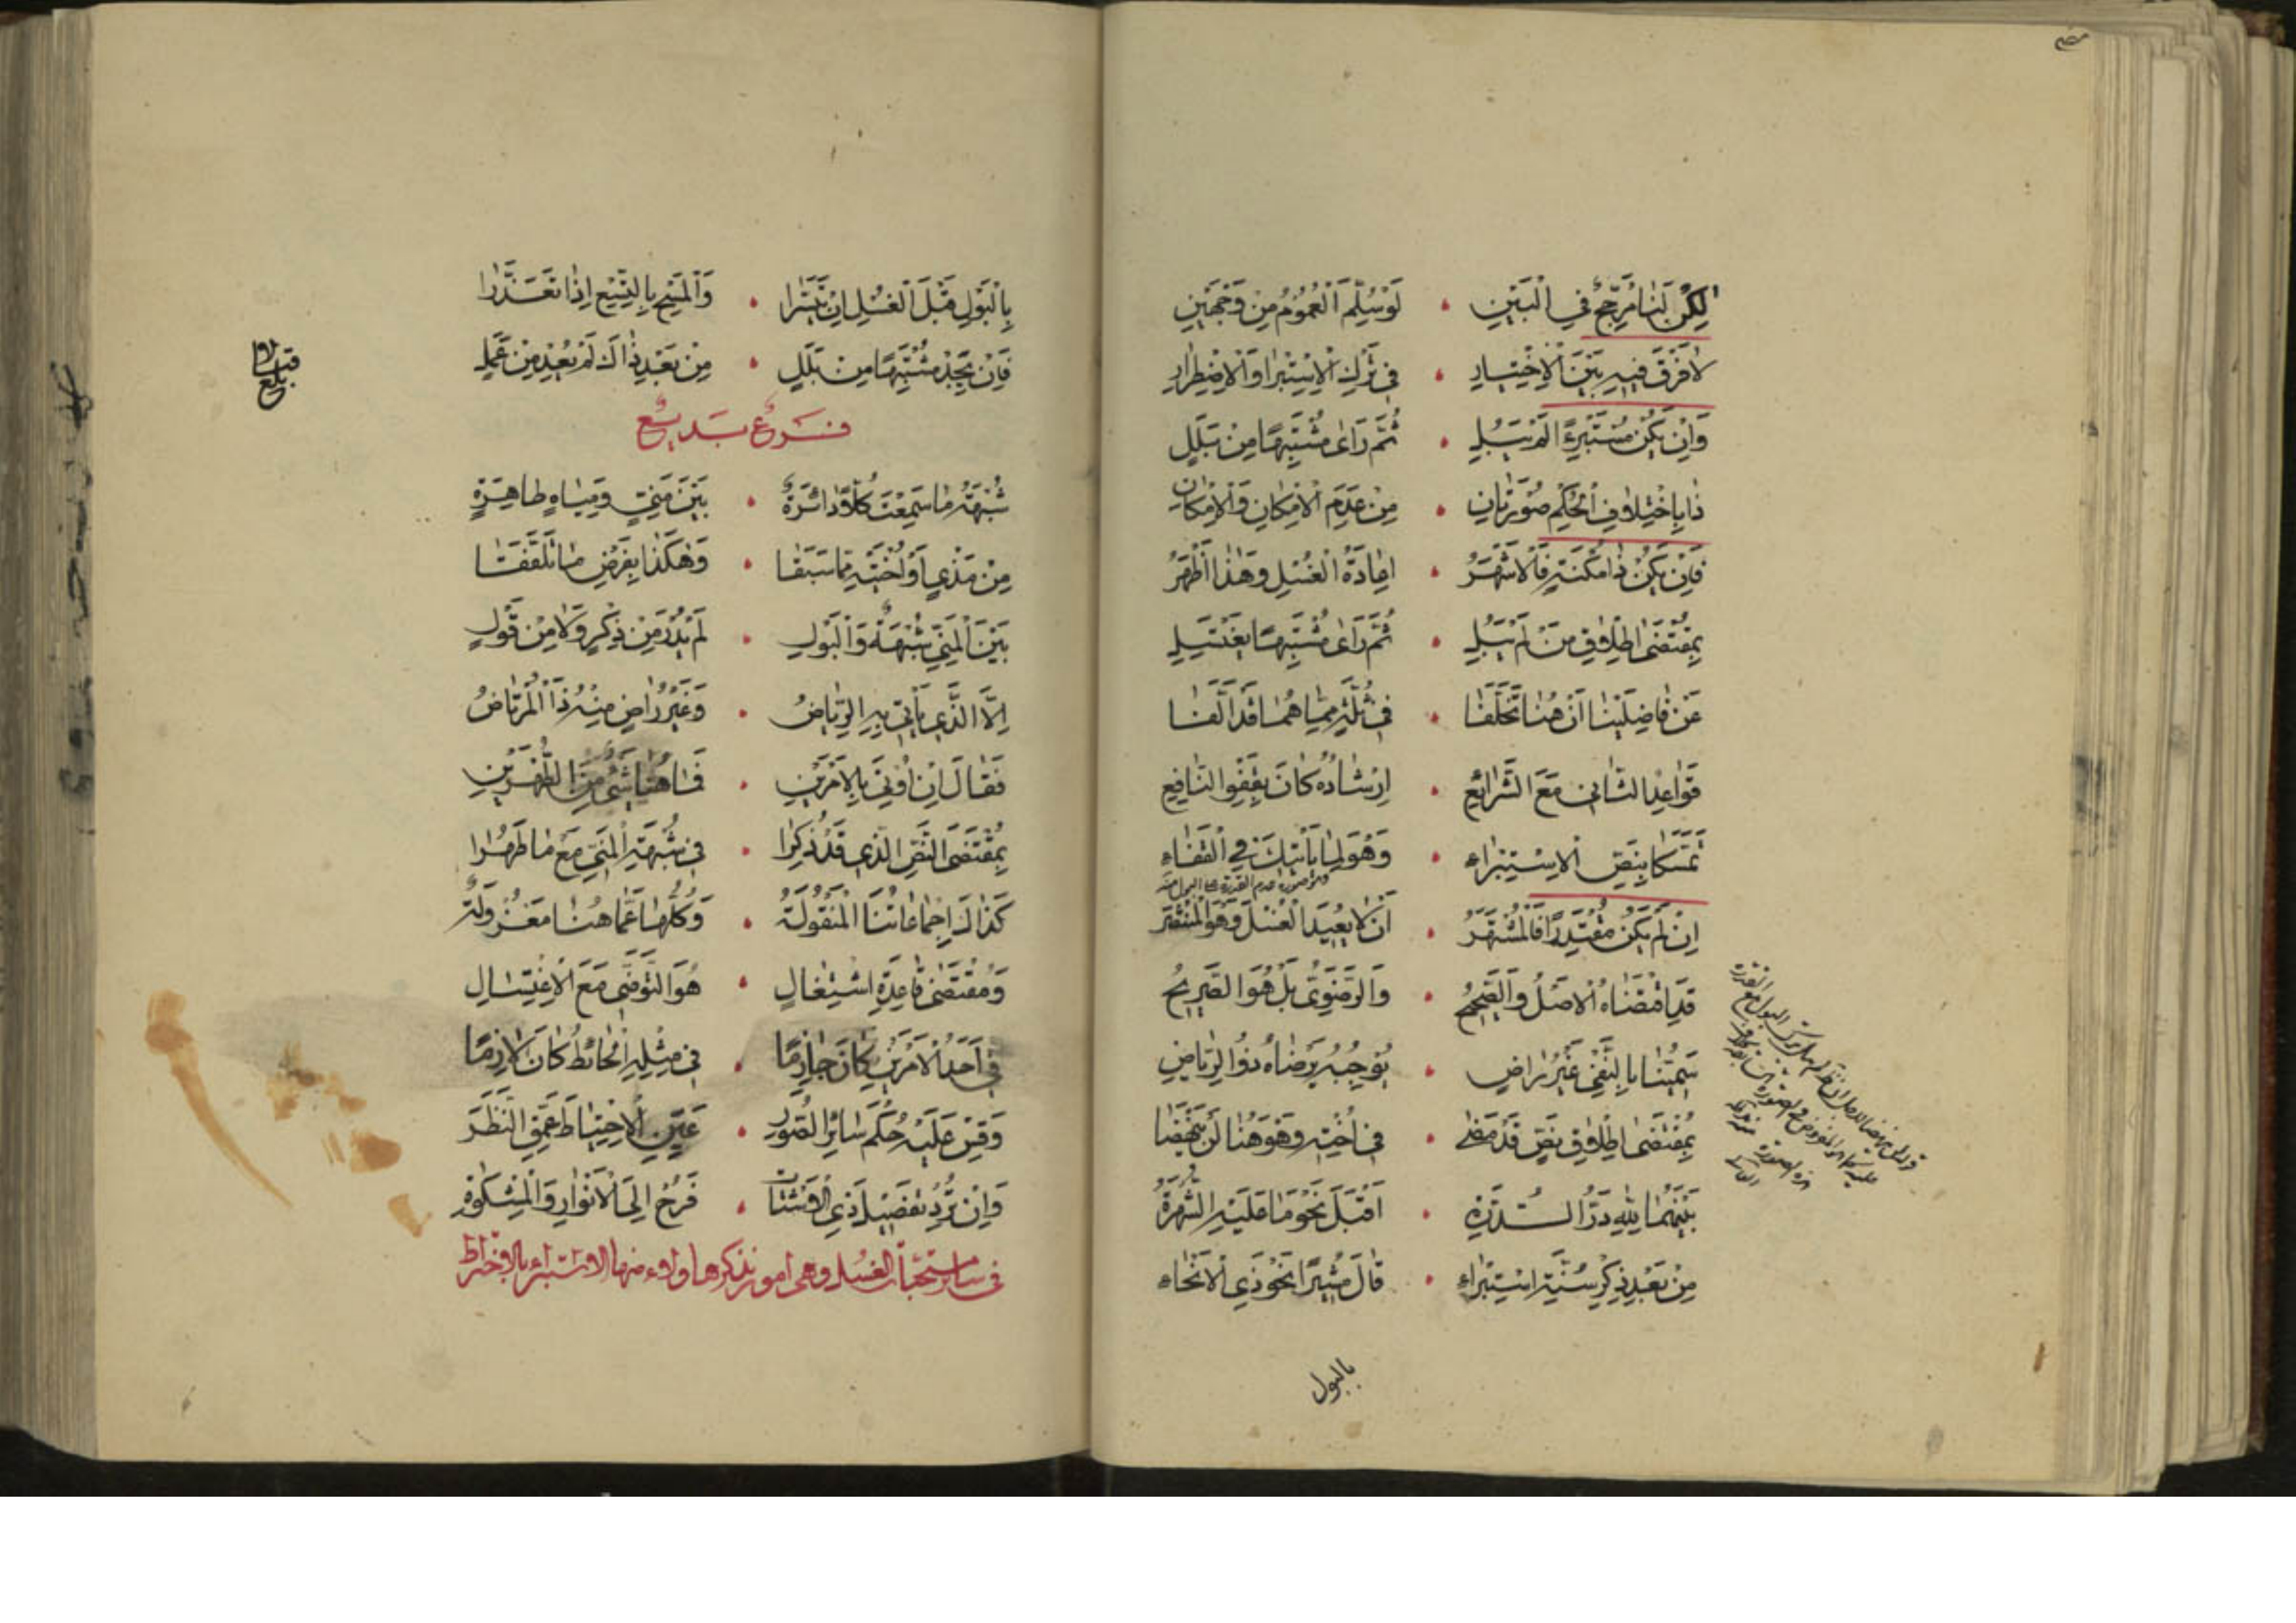 لٰكِنْ لَنَا مُرَجِّحٌ فِي الْبَيْنِ • لَوْ سُلِّمَ الْعُمُومُ مِنْ وَجْهَيْنِ
لَا فَرْقَ فِيهِ بَيْنَ الْاِخْتِيَارِ • فِي تَرْكِ الْاِسْتِبْرَا وَالْاِضْطِرَارِ
وَاِنْ يَكُنْ مُسْتَبْرِءً لَمْ يَبُلِ • ثُمَّ رَاٰى مُشْتَبِهًا مِنْ بَلَلٍ
ذَا بِاخْتِلَافِ الْحُكْمِ صُورَتَانِ • مِنْ عَدَمِ الْاِمْكَانِ وَالْاِمْكَانِ
فَاِنْ يَكُنْ ذَا مُكْنَةٍ فَالْاَشْهَرُ • اِعَادَةُ الْغُسْلِ وَهٰذَا اَظْهَرُ
بِمُقْتَضٰى اِطْلَاقِ مَنْ لَمْ يَبُلِ • ثُمَّ رَاٰى مُشْتَبِهًا يَغْتَسِلِ
عَنْ فَاضِلَيْنَا اَنْ هُنَا تَخَلَّفَا • فِي ثُلَّةٍ مِمَّا هُمَا قَدْ اَلَّفَا
قَوَاعِدُ الثَّانِي مَعَ الشَّرَائِعِ • اِرْشَادُهُ كَانَ بِقَفْوِ النَّافِعِ
تَمَسُّكًا بِنَصِّ الْاِسْتِبْرَاءِ • وَهْوَ لِمَا يَأْتِيكَ فِي الْقَفَاءِ
اِنْ لَمْ يَكُنْ مُقْتَدِرًا فَالْمُشْتَهَرُ • اَنْ لَا يُعِيدَ الْغُسْلَ وَهُوَ الْمُنْتَصَرُ
قَدِ اقْتَضَاهُ الْاَصْلُ وَالصَّحِيحُ • وَالرَّضَوِيُّ بَلْ هُوَ الصَّرِيحُ
بِالنَّفْيِ غَيْرُ رَاضٍ • يُوجِبُهُ يَرْضَاهُ ذُو الرِّيَاضِ
بِمُقْتَضٰى اِطْلَاقِ نَصٍّ قَدْ مَضٰى • فِي اُخْتِهِ وَهْوَ هُنَا لَنْ يَنْهَضَا
بَيْنَهُمَا لِلّٰهِ دَرُّ الدُّرَّةِ • اَقْبَلَ نَحْوَ مَا عَلَيْهِ الشُّهْرَةُ
مِنْ بَعْدِ ذِكْرِ سُنَّةِ اسْتِبْرَاءِ • قَالَ مُشِيرًا نَحْوَ ذِي الْاَنْحَاءِ
بالبول
بِالْبَوْلِ قَبْلَ الْغُسْلِ اِنْ تَيَسَّرَا • وَالْمَسْحِ بِالتِّسْعِ اِذَا تَعَذَّرَا
فَاِنْ يَجِدْ مُشْتَبِهًا مِنْ بَلَلٍ • مِنْ بَعْدِ ذَاكَ لَمْ يُعِدْ مِنْ عَمَلِ
بلغ
فَرْعٌ بَدِيعٌ
شُبْهَةُ مَا سَمِعْتَ كُلًّا دَائِرَةٌ • بَيْنَ مَنِيٍّ وَمِيَاهٍ طَاهِرَةٍ
مِنْ مَذْيٍ اَوْ اُخْتَيْهِ مِمَّا سَبَقَا • وَهٰكَذَا بِفَرْضِ مَا تَلَفَّقَا
بَيْنَ الْمَنِيِّ شُبْهَةٌ وَالْبَوْلِ • لَمْ يُدْرَ مِنْ ذِكْرٍ وَلَا مِنْ قَوْلٍ
اِلَّا الَّذِي يَأْتِي بِهِ الرِّيَاضُ • وَغَيْرُ رَاضٍ مِنْهُ ذَا الْمُرْتَاضُ
فَقَالَ اِنْ اُوتِيَ بِالْاَمْرَيْنِ • فَمَا هُنَا شَيْءٌ مِنَ الطُّهْرَيْنِ
بِمُقْتَضَى النَّصِّ الَّذِي قَدْ ذُكِرَا • فِي شُبْهَةِ الْمَنِيِّ مَعْ مَا طَهُرَا
كَذَاكَ اِجْمَاعَاتُنَا الْمَنْقُولَةُ • وَكُلُّهَا عَمَّا هُنَا مَعْزُولَةٌ
وَمُقْتَضٰى قَاعِدَةِ اشْتِغَالٍ • هُوَ التَّوَضِّي مَعَ الْاِغْتِسَالِ
فِي اَحَدِ الْاَمْرَيْنِ كَانَ جَازِمًا • فِي مِثْلِهِ الْحَائِطُ كَانَ لَازِمًا
وَقِسْ عَلَيْهِ حُكْمَ سَائِرِ الصُّوَرِ • عَيِّنِ الْاِحْتِيَاطَ عَمِّقِ النَّظَرَ
وَاِنْ تُرِدْ تَفْصِيلَ ذِي الْاَشْتَاتِ • فَرُحْ اِلَى الْاَنْوَارِ وَالْمِشْكٰوةِ
فى سائر مستحبات الغسل وهى امور نذكرها ولاء منها الاستبراء بالاختراط